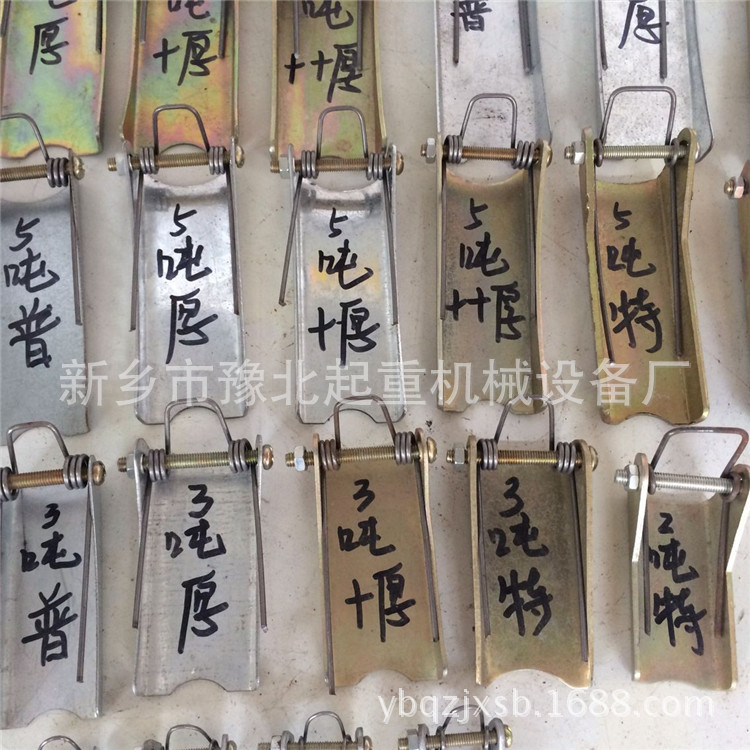 吨
厚
吨
十厚
吨
十十厚
普
厚
5
吨
普
5
吨
厚
5
吨
十厚
5
吨
十十厚
5
吨
特
新乡市豫北起重机械设备厂
3
吨
普
3
吨
厚
3
吨
十厚
3
吨
特
2
吨
特
ybqzjxsb.1688.com